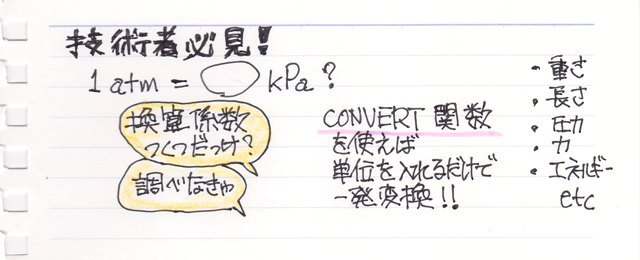 技術者必見!
1 atm = kPa?
換算係数
いくつだっけ?
調べなきゃ
CONVERT関数
を使えば
単位を入れるだけで
一発変換!!
・重さ
・長さ
・圧力
・力
・エネルギー
etc